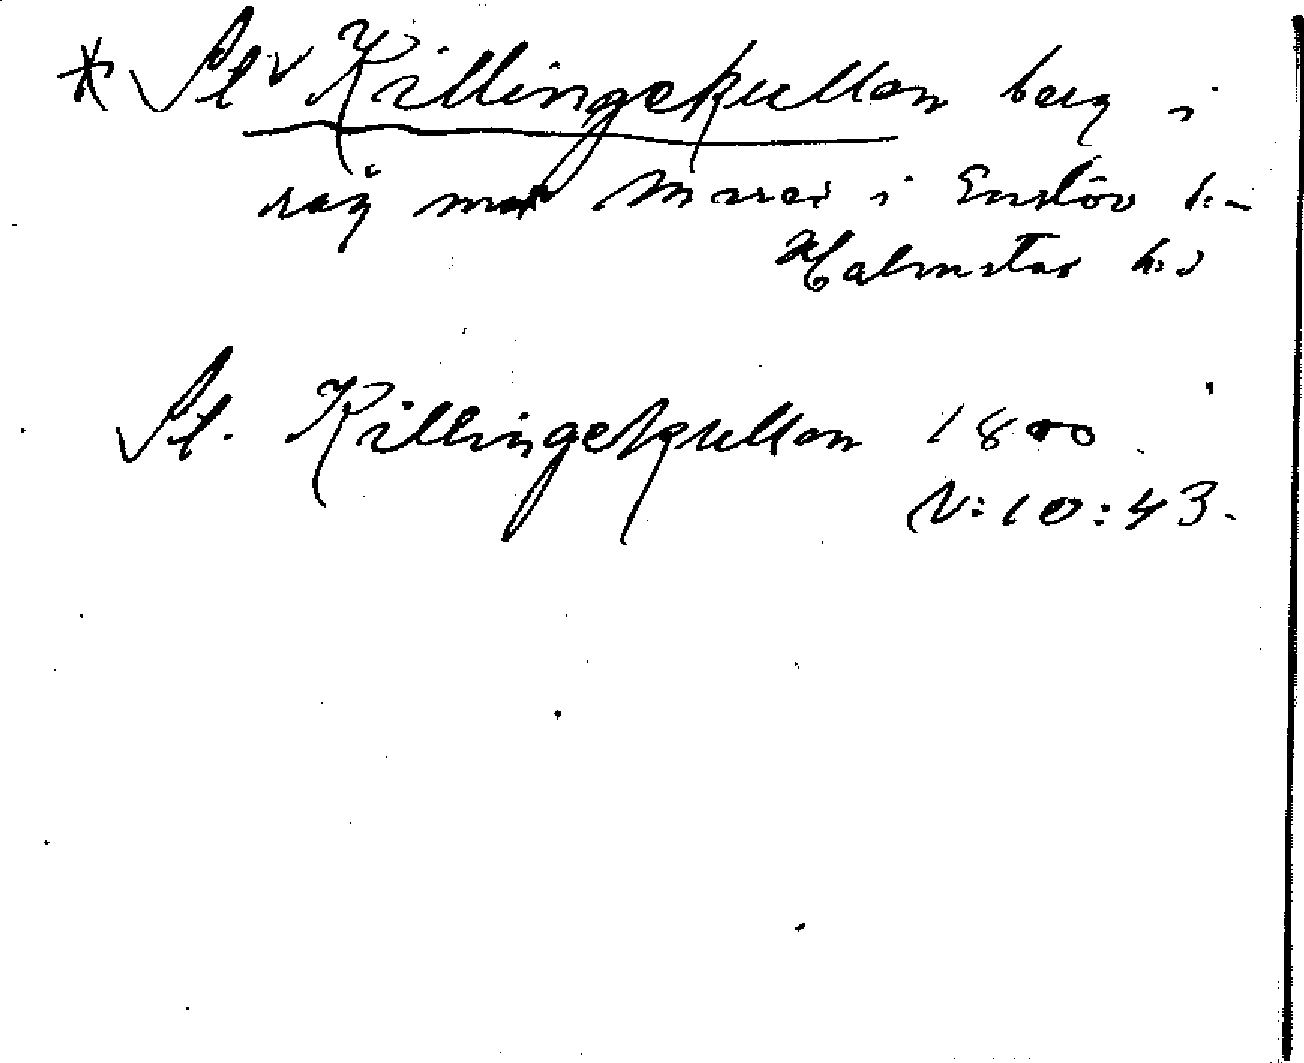 * St Killingekullen berg i
råg mot Mared i Enslöv sn
Halmstad hd
St. Killingekullen 1800
N:10:43.